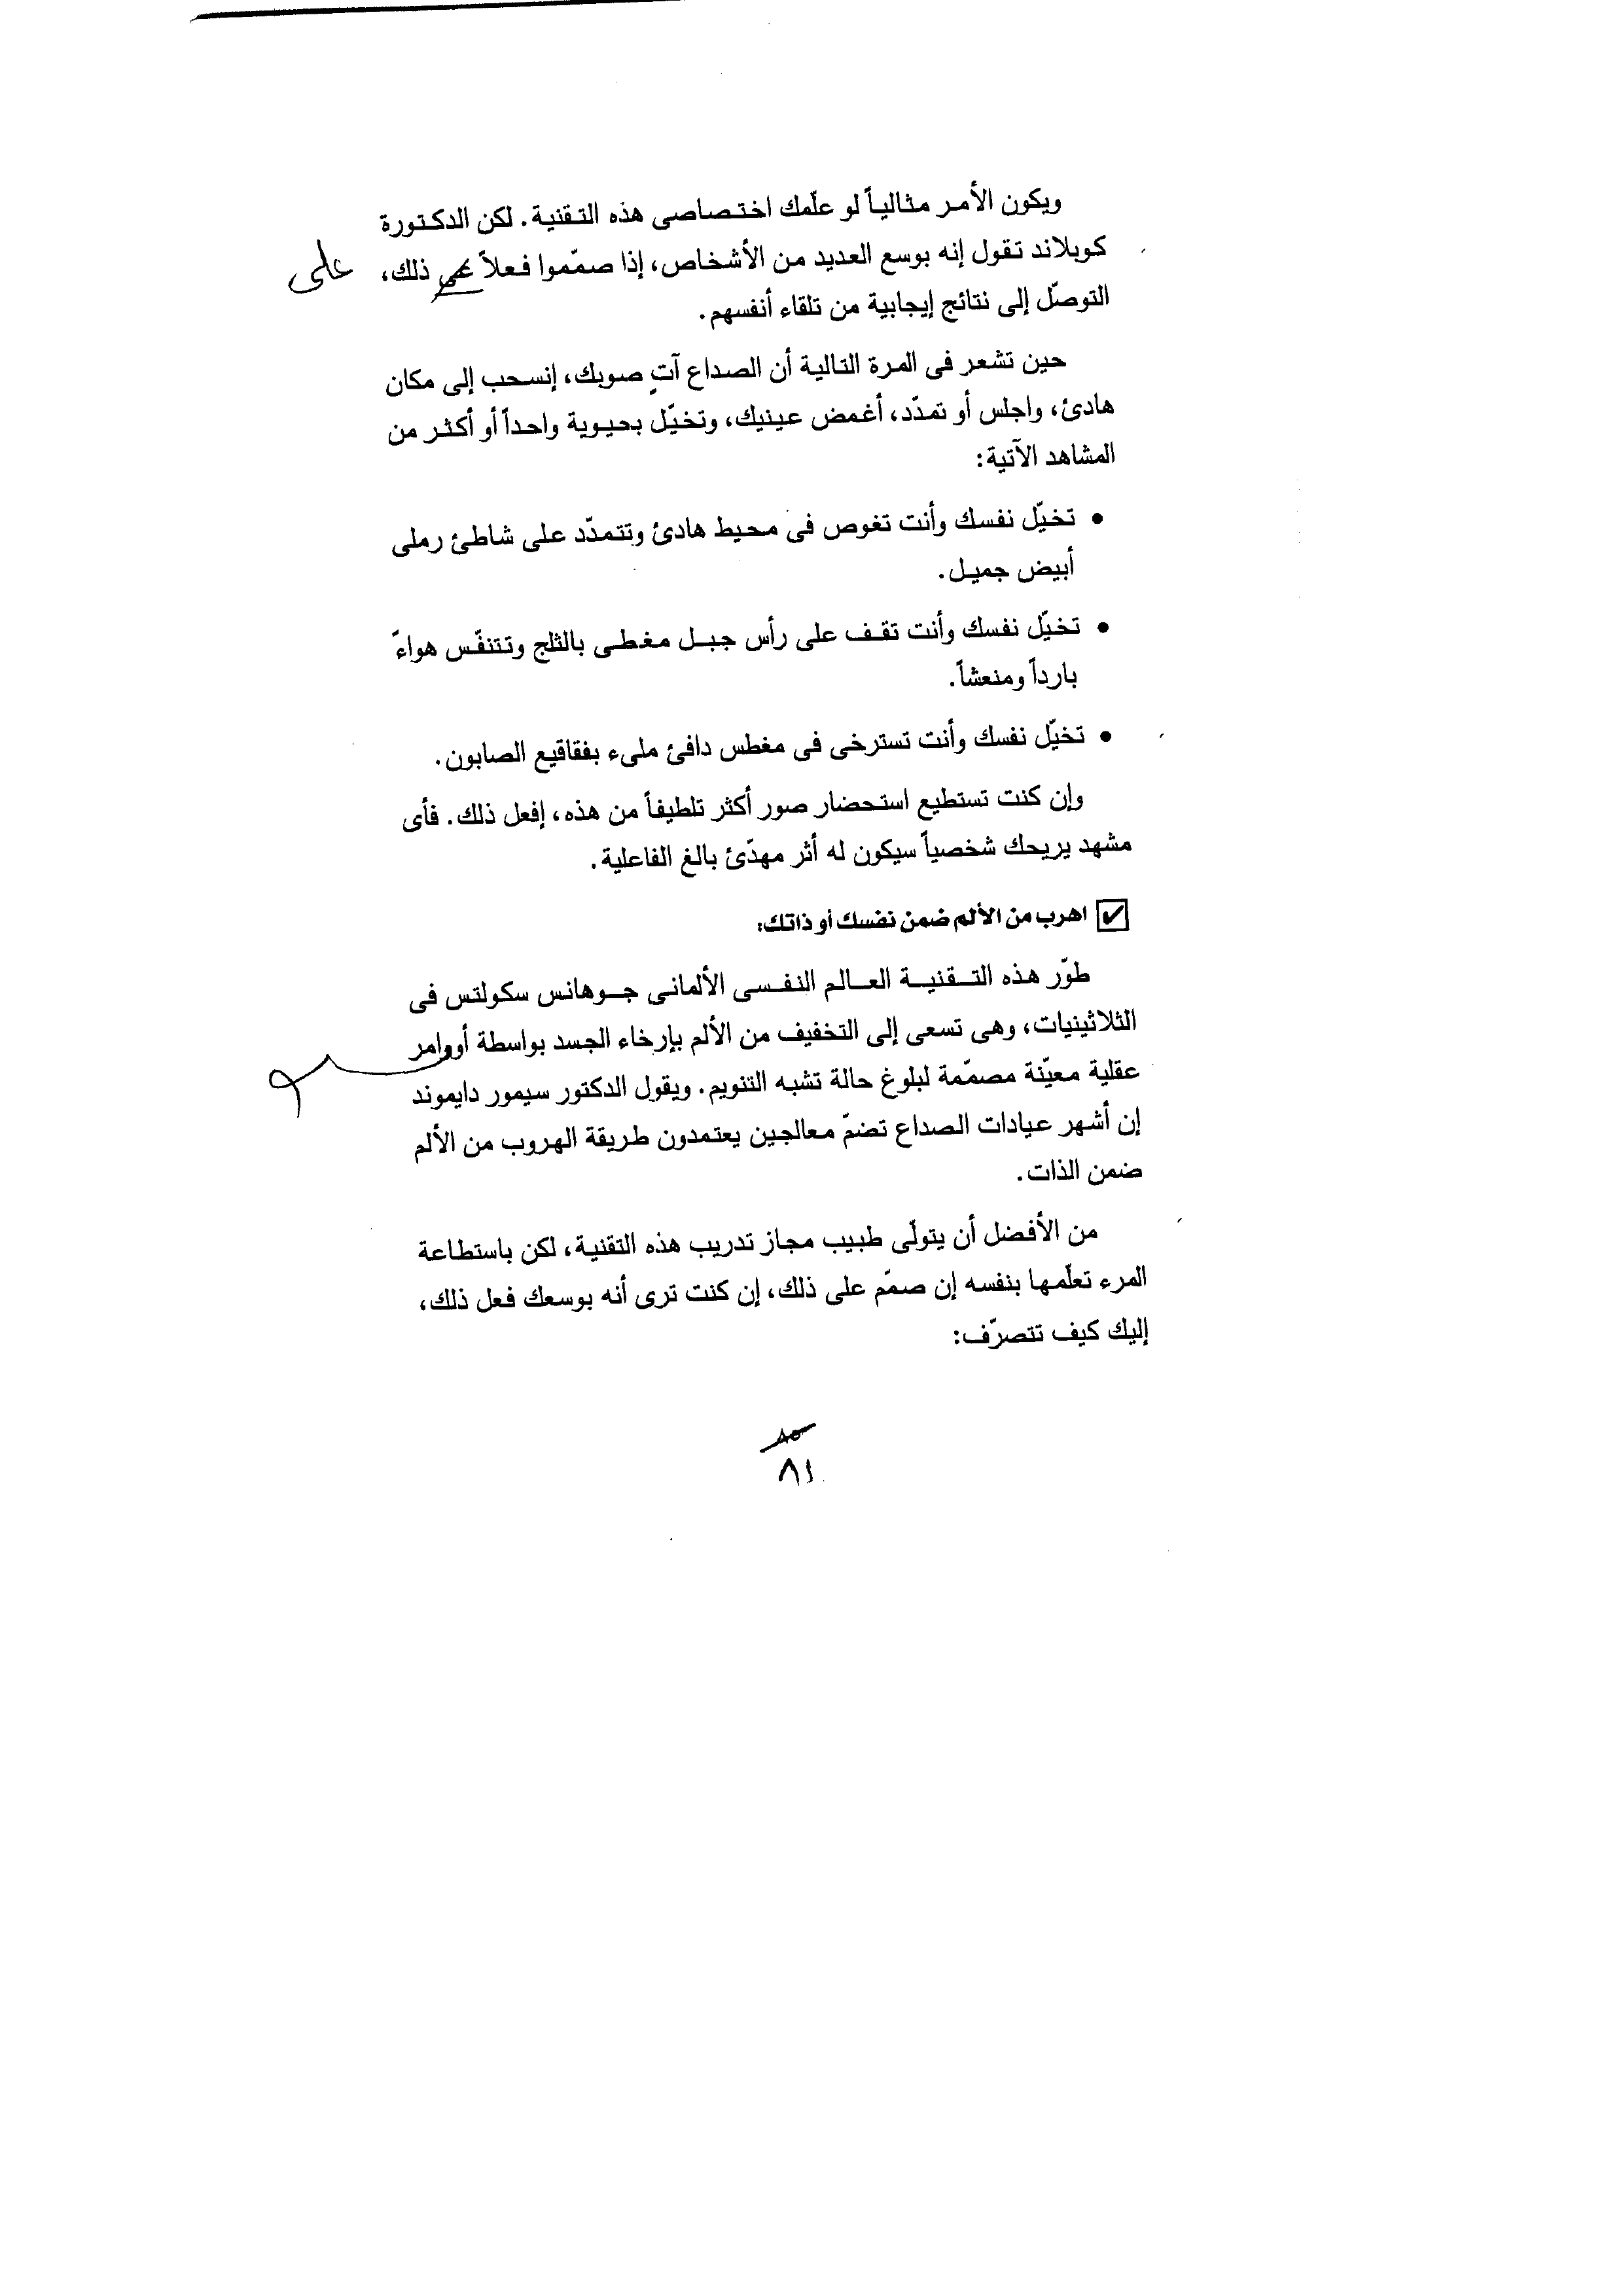 ويكون الأمر مثالياً لو علّمك اختصاصى هذه التقنية. لكن الدكتورة
كوبلاند تقول إنه بوسع العديد من الأشخاص، إذا صمّموا فعلاً ذلك،
على
التوصّل إلى نتائج إيجابية من تلقاء أنفسهم.
حين تشعر فى المرة التالية أن الصداع آتٍ صوبك، إنسحب إلى مكان
هادئ، واجلس أو تمدّد، أغمض عينيك، وتخيّل بحيوية واحداً أو أكثر من
المشاهد الآتية:
• تخيّل نفسك وأنت تغوص فى محيط هادئ وتتمدّد على شاطئ رملى
أبيض جميل.
• تخيّل نفسك وأنت تقف على رأس جبل مغطى بالثلج وتتنفّس هواءً
بارداً ومنعشاً.
• تخيّل نفسك وأنت تسترخى فى مغطس دافئ ملىء بفقاقيع الصابون.
وإن كنت تستطيع استحضار صور أكثر تلطيفاً من هذه، إفعل ذلك. فأى
مشهد يريحك شخصياً سيكون له أثر مهدّئ بالغ الفاعلية.
☑ اهرب من الألم ضمن نفسك أو ذاتك:
طوّر هذه التقنية العالم النفسى الألمانى جوهانس سكولتس فى
الثلاثينيات، وهى تسعى إلى التخفيف من الألم بإرخاء الجسد بواسطة أووامر
عقلية معيّنة مصمّمة لبلوغ حالة تشبه التنويم. ويقول الدكتور سيمور دايموند
إن أشهر عيادات الصداع تضمّ معالجين يعتمدون طريقة الهروب من الألم
ضمن الذات.
من الأفضل أن يتولّى طبيب مجاز تدريب هذه التقنية، لكن باستطاعة
المرء تعلّمها بنفسه إن صمّم على ذلك، إن كنت ترى أنه بوسعك فعل ذلك،
إليك كيف تتصرّف:
٨٥
٨١